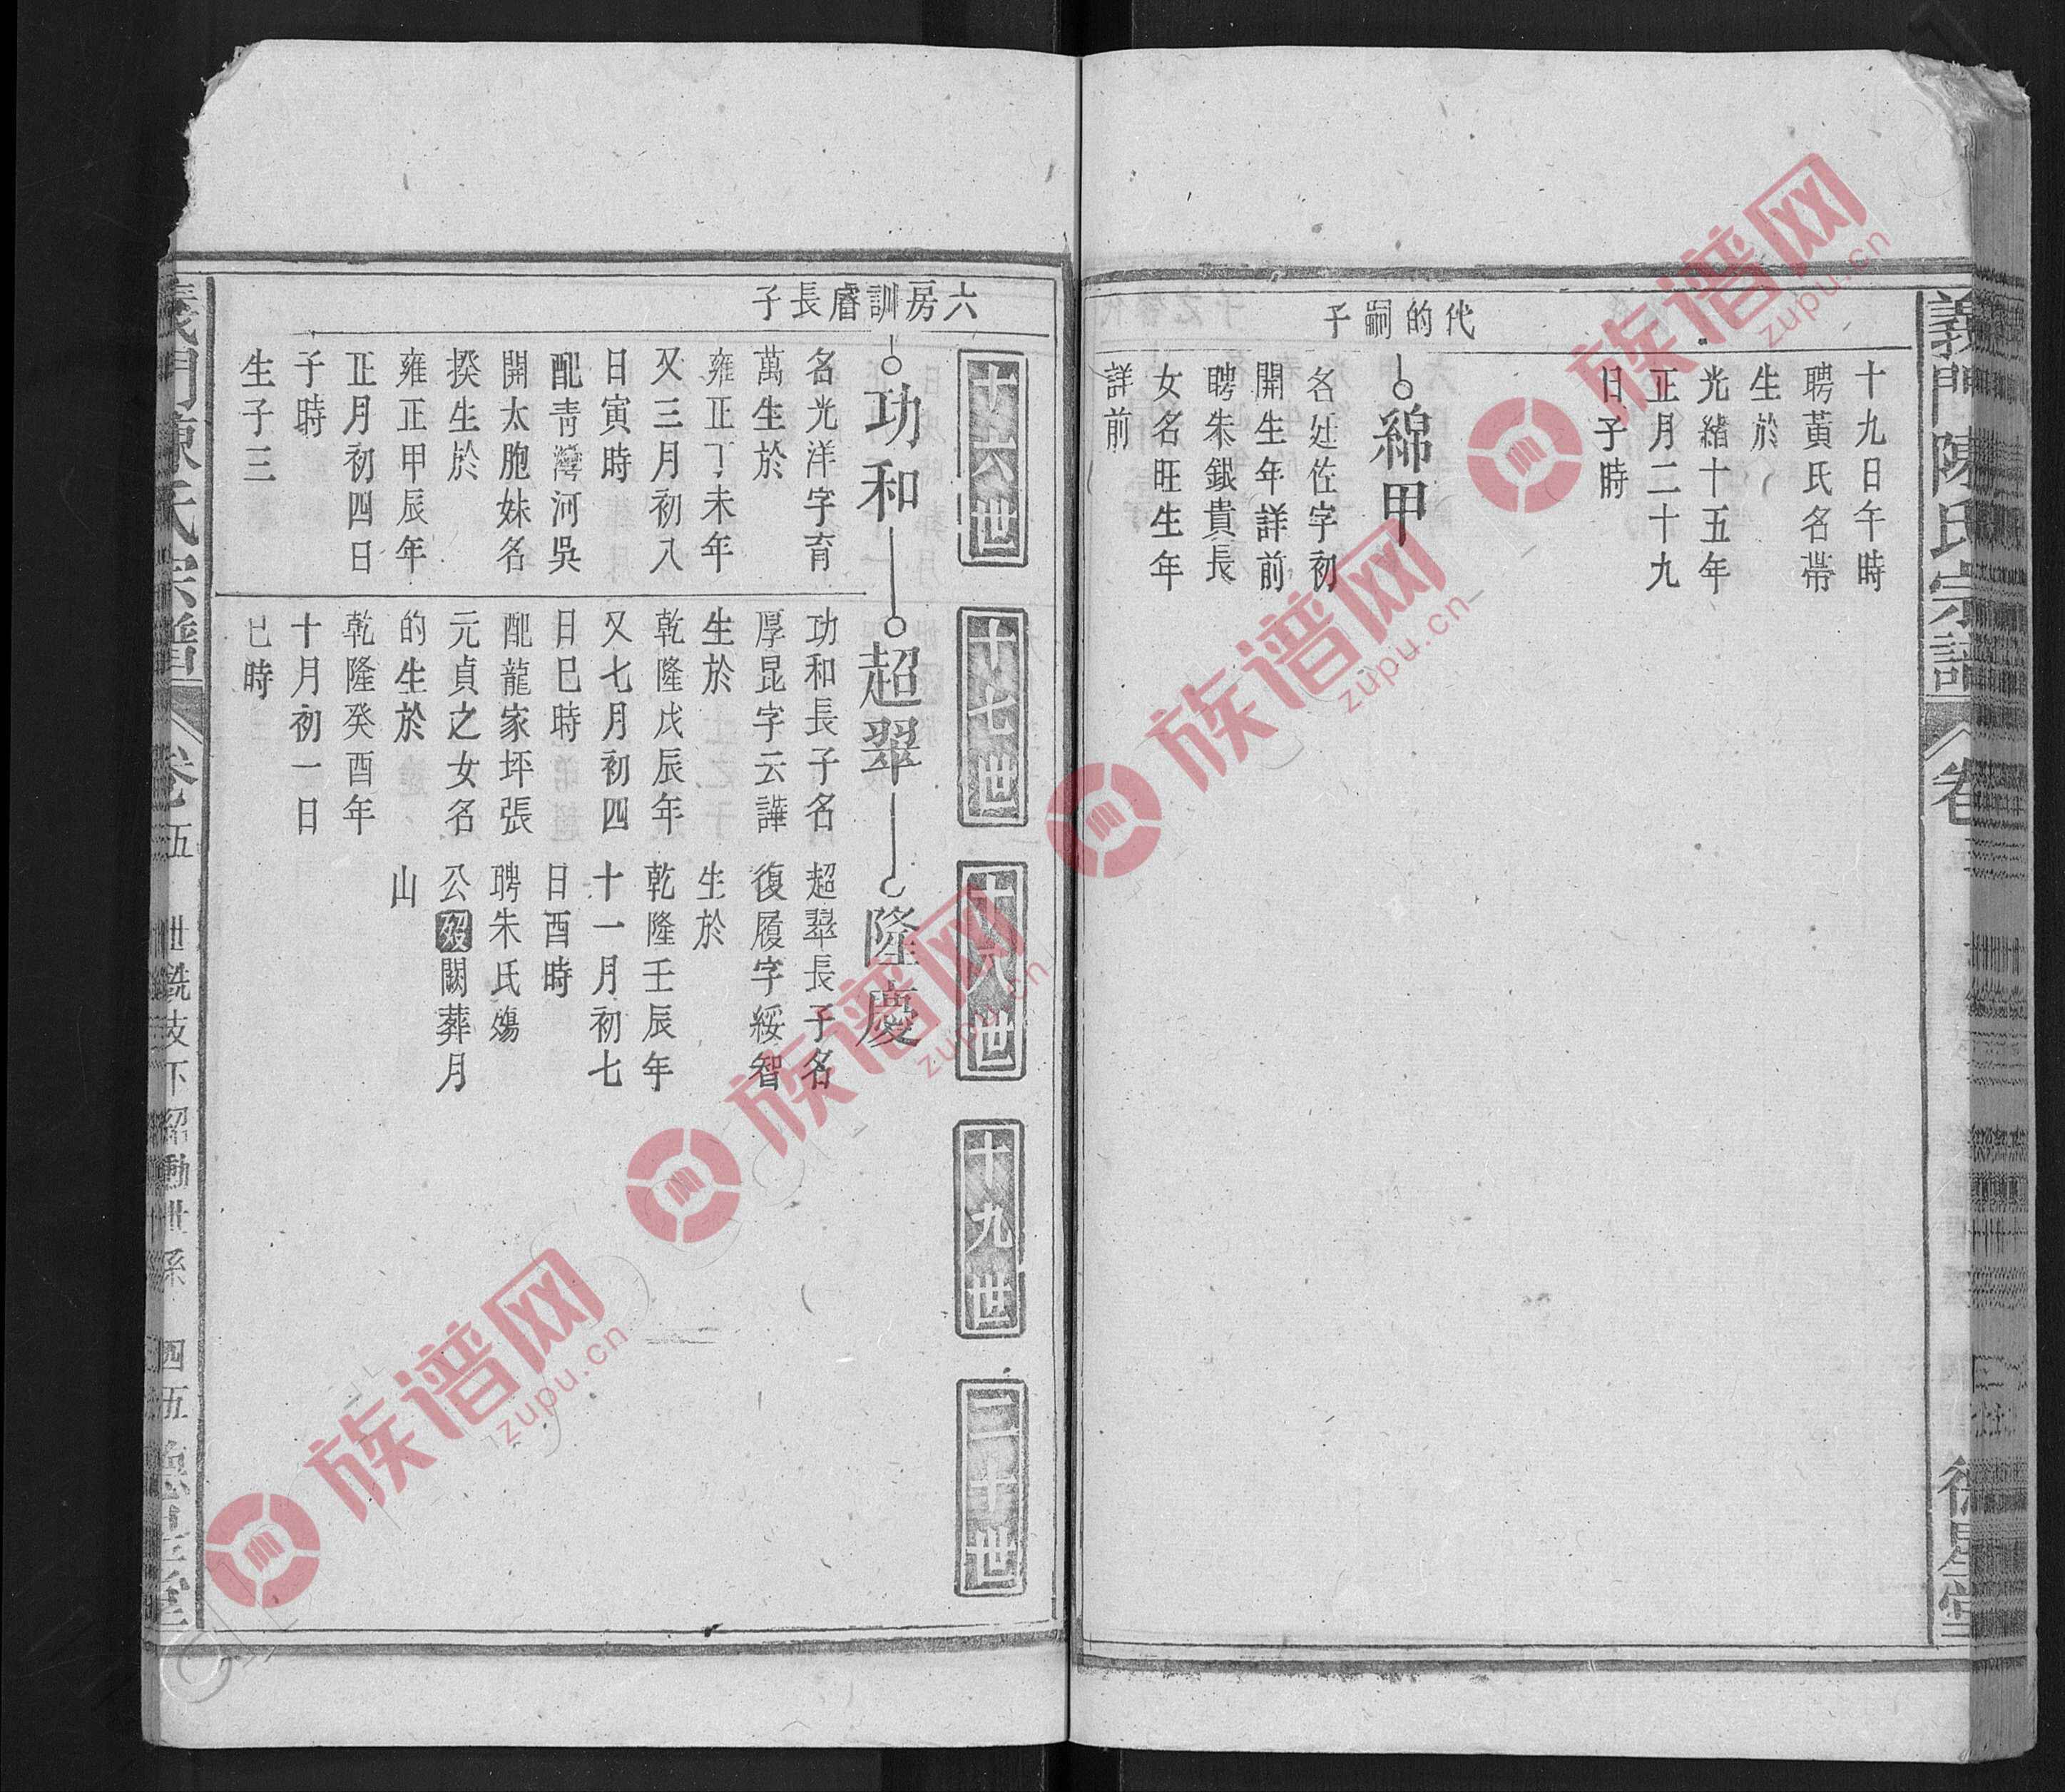 義門陳氏宗譜
卷
代的嗣子
十九日午時
聘黃氏名帶
生於
光緒十五年
正月二十九
日子時
綿甲
名廷佐字初
開生年詳前
聘朱銀貴長
女名旺生年
詳前
六房訓睿長子
十六世
十七世
十八世
十九世
二十世
功和
名光洋字育
萬生於
雍正丁未年
又三月初八
日寅時
配青灣河吳
開太胞妹名
揆生於
雍正甲辰年
正月初四日
子時
生子三
超翠
功和長子名
厚昆字云譁
生於
乾隆戊辰年
又七月初四
日巳時
配龍家坪張
元貞之女名
的生於
乾隆癸酉年
十月初一日
巳時
隆慶
超翠長子名
復履字綏智
生於
乾隆壬辰年
十一月初七
日酉時
聘朱氏殤
公歿闕葬月
山
義門陳氏宗譜
卷五
世銑支下紹勳世系
四五
族谱网
zupu.cn
族谱网
zupu.cn
族谱网
zupu.cn
族谱网
zupu.cn